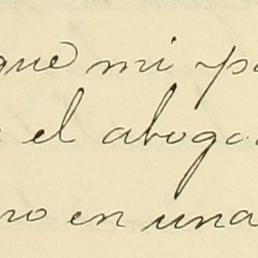 que mi p
el aboga
ro en una